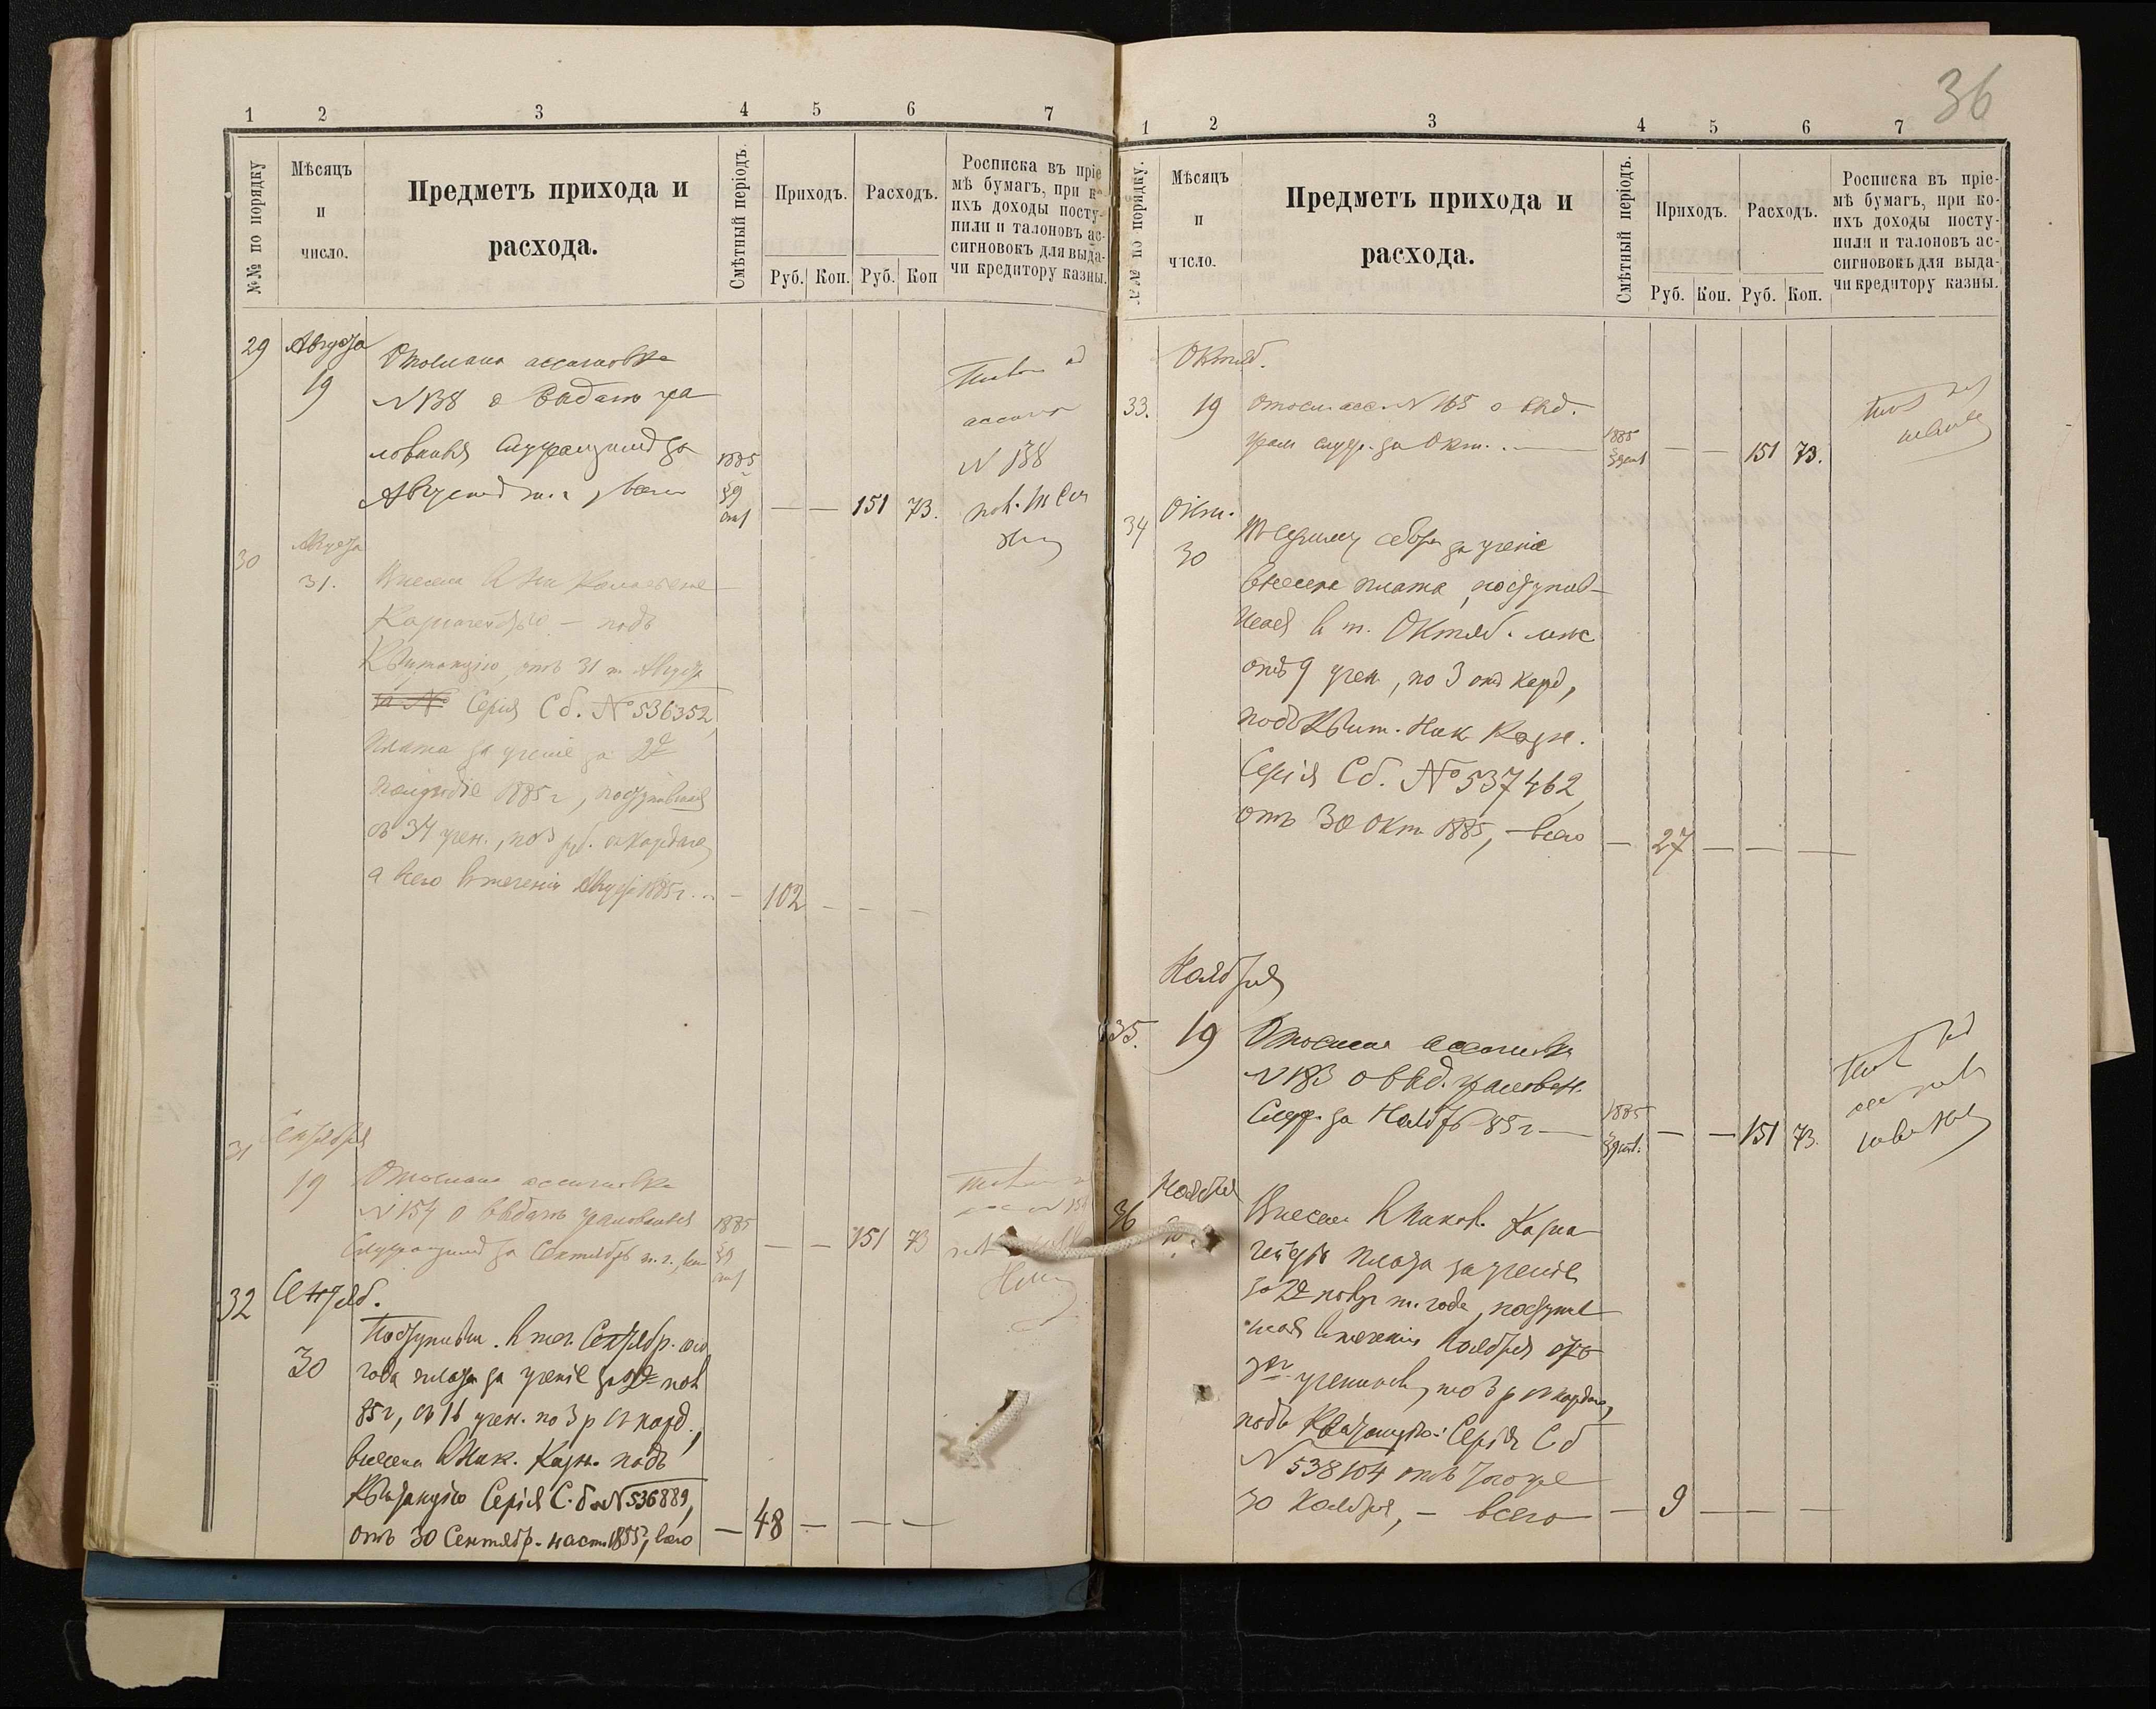 36
1 2 3 4 5 6 7
№№ по порядку
Мѣсяцъ
и
число.
Предметъ прихода и
расхода.
Смѣтный періодъ.
Приходъ. Расходъ.
Руб. Коп. Руб. Коп
Росписка въ пріе
мѣ бумагъ, при к
ихъ доходы посту-
пили и талоновъ ас-
сигновокъ для выда-
чи кредитору казны.
29 Августа
19
Отослана ассигновка
№ 138 о выдачѣ жа
лованья служащимъ за
Августъ всего
1885 § 9
— — 151 73.
№ 138
30 Августа
31.
Внесена въ Казначейство — подъ
Квитанцію, отъ 31 т. Августа
за № Серія Сб. № 536352,
Плата за ученіе за 2е
полугодіе 1885 г, поступившая
съ 34 учен., по 3 руб. съ каждаго,
а всего въ теченіи Августа 1885 г.
— 102 — — —
31 Сентября
19
Отослана ассигновка
№ 154 о выдачѣ жалованья
служащимъ за Сентябрь т. г.,
1885 § 9
— — 151 73
32 Сентяб.
30
Поступивш. въ теч. Сентябр. сего
года плата за ученіе за 2е пол
85 г, съ 16 учен. по 3 р съ кажд.,
внесена въ Ник. Казн. подъ
Квитанцію Серія С. б № 536889,
отъ 30 Сентябр. наст. 1885, всего
— 48 — — —
1 2 3 4 5 6 7
по порядку.
Мѣсяцъ
и
число.
Предметъ прихода и
расхода.
Смѣтный періодъ.
Приходъ. Расходъ.
Руб. Коп. Руб. Коп.
Росписка въ пріе-
мѣ бумагъ, при ко-
ихъ доходы посту-
пили и талоновъ ас-
сигновокъ для выда-
чи кредитору казны.
Октяб.
33. 19
Отосл. асс. № 165 о выд.
жал. служ. за Окт.
1885
— — 151 73.
34 Окт.
30
сбора за ученіе
внесена плата, поступив-
шая въ т. Октяб.
отъ 9 учен., по 3 отъ кажд,
подъ Квит. Ник. Казн.
Серія Сб. № 537462,
отъ 30 Окт. 1885, — всего
— 27 — — —
Ноября
35. 19
Отослана ассигновка
№ 183 о выд. жалован.
Служ. за Ноябрь 85 г —
1885
— — 151 73.
36 Ноября
Внесена въ Никол. Казна
чейство плата за ученіе
за 2е полуг т. года, поступив
шая въ теченіи Ноября отъ
3хъ учениковъ, по 3 р съ каждаго,
подъ Квитанцію: Серія Сб
№ 538104 отъ того же
30 Ноября, — всего
— 9 — — —